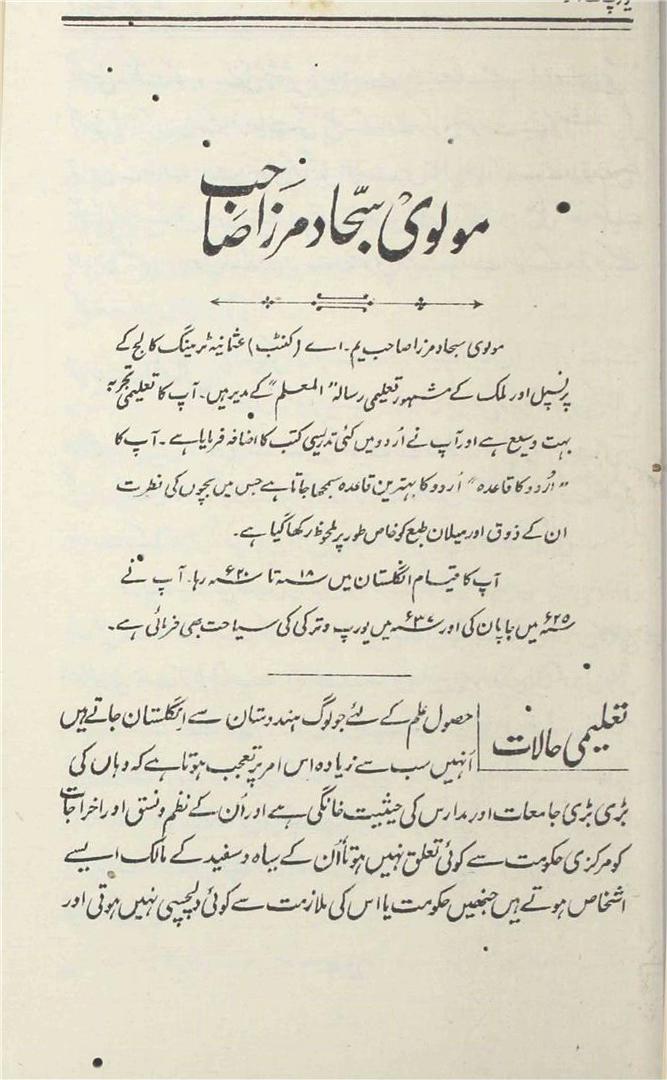 مولوی سجّاد مرزا صاحب
مولوی سجاد مرزا صاحب یم۔ اے (کنٹب) عثمانیہ ٹریننگ کالج کے
پرنسپل اور ملک کے مشہور تعلیمی رسالہ "المعلم" کے مدیر ہیں۔ آپ کا تعلیمی تجربہ
بہت وسیع ہے اور آپ نے اُردو میں کئی تدریسی کتب کا اضافہ فرمایا ہے۔ آپ کا
"اُردو کا قاعدہ" اُردو کا بہترین قاعدہ سمجھا جاتا ہے جس میں بچوں کی فطرت
ان کے ذوق اور میلان طبع کو خاص طور پر ملحوظ رکھا گیا ہے۔
آپ کا قیام انگلستان میں ۱۸ء تا ۶۲۰ رہا۔ آپ نے
۶۲۵ میں جاپان کی اور ۶۳۷ میں یورپ و ترکی کی سیاحت بھی فرمائی ہے۔
تعلیمی حالات
حصول علم کے لئے جو لوگ ہندوستان سے انگلستان جاتے ہیں
اُنہیں سب سے زیادہ اس امر پر تعجب ہوتا ہے کہ وہاں کی
بڑی بڑی جامعات اور مدارس کی حیثیت خانگی ہے اور اُن کے نظم و نسق اور اخراجات
کو مرکزی حکومت سے کوئی تعلق نہیں ہوتا اُن کے سیاہ و سفید کے مالک ایسے
اشخاص ہوتے ہیں جنھیں حکومت یا اس کی ملازمت سے کوئی دلچسپی نہیں ہوتی اور